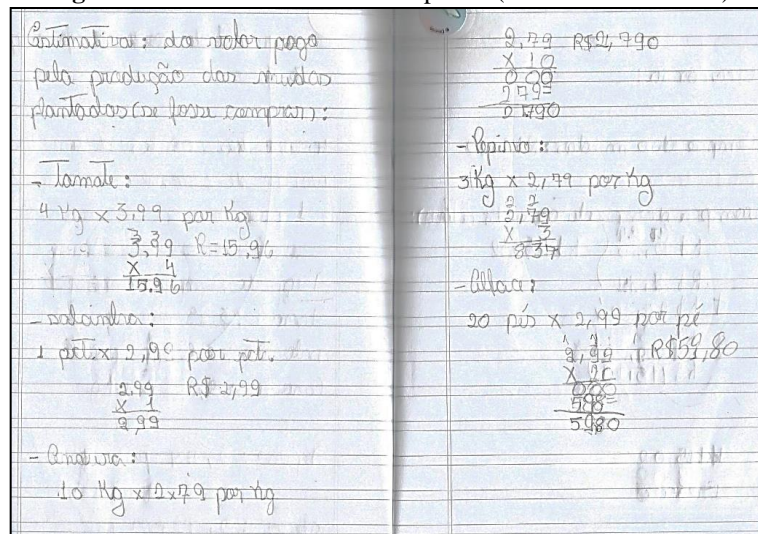 Estimativa: do valor pago
pela produção das mudas
plantadas (se fosse comprar):
- Tomate:
4 Kg x 3,99 por Kg
3 3
3,99 R=15,96
x 4
15,96
- salsinha:
1 pct. x 2,99 por pct.
2,99 R$ 2,99
x 1
2,99
10 Kg x 2x79 por Kg
2,79 R$2,790
x 10
000
279=
2790
- Pepino:
3 Kg x 2,79 por Kg
2 2
2,79
x 3
8 37
- Alface:
20 pés x 2,99 por pé
2,99 R$59,80
x 20
000
598=
5980